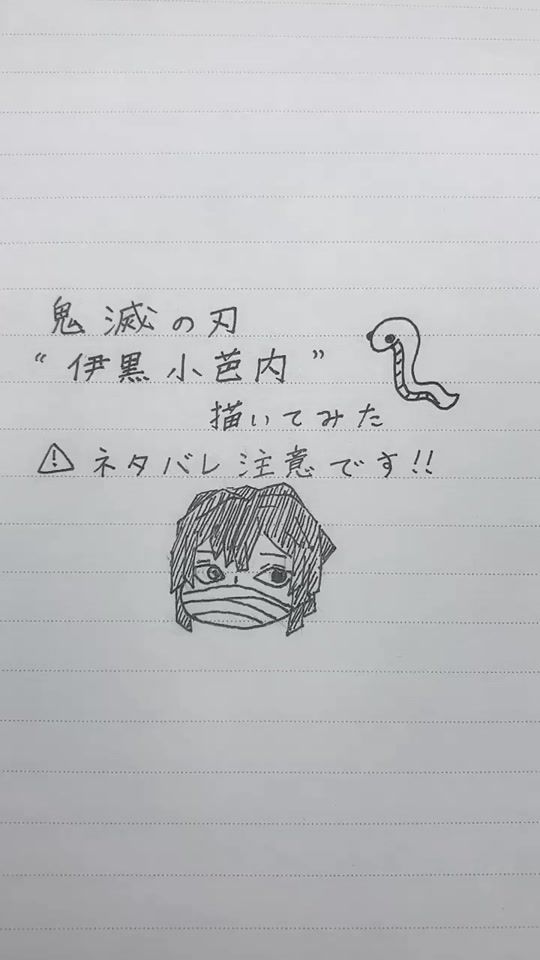 鬼滅の刃
“伊黒小芭内”
描いてみた
⚠ネタバレ注意です!!